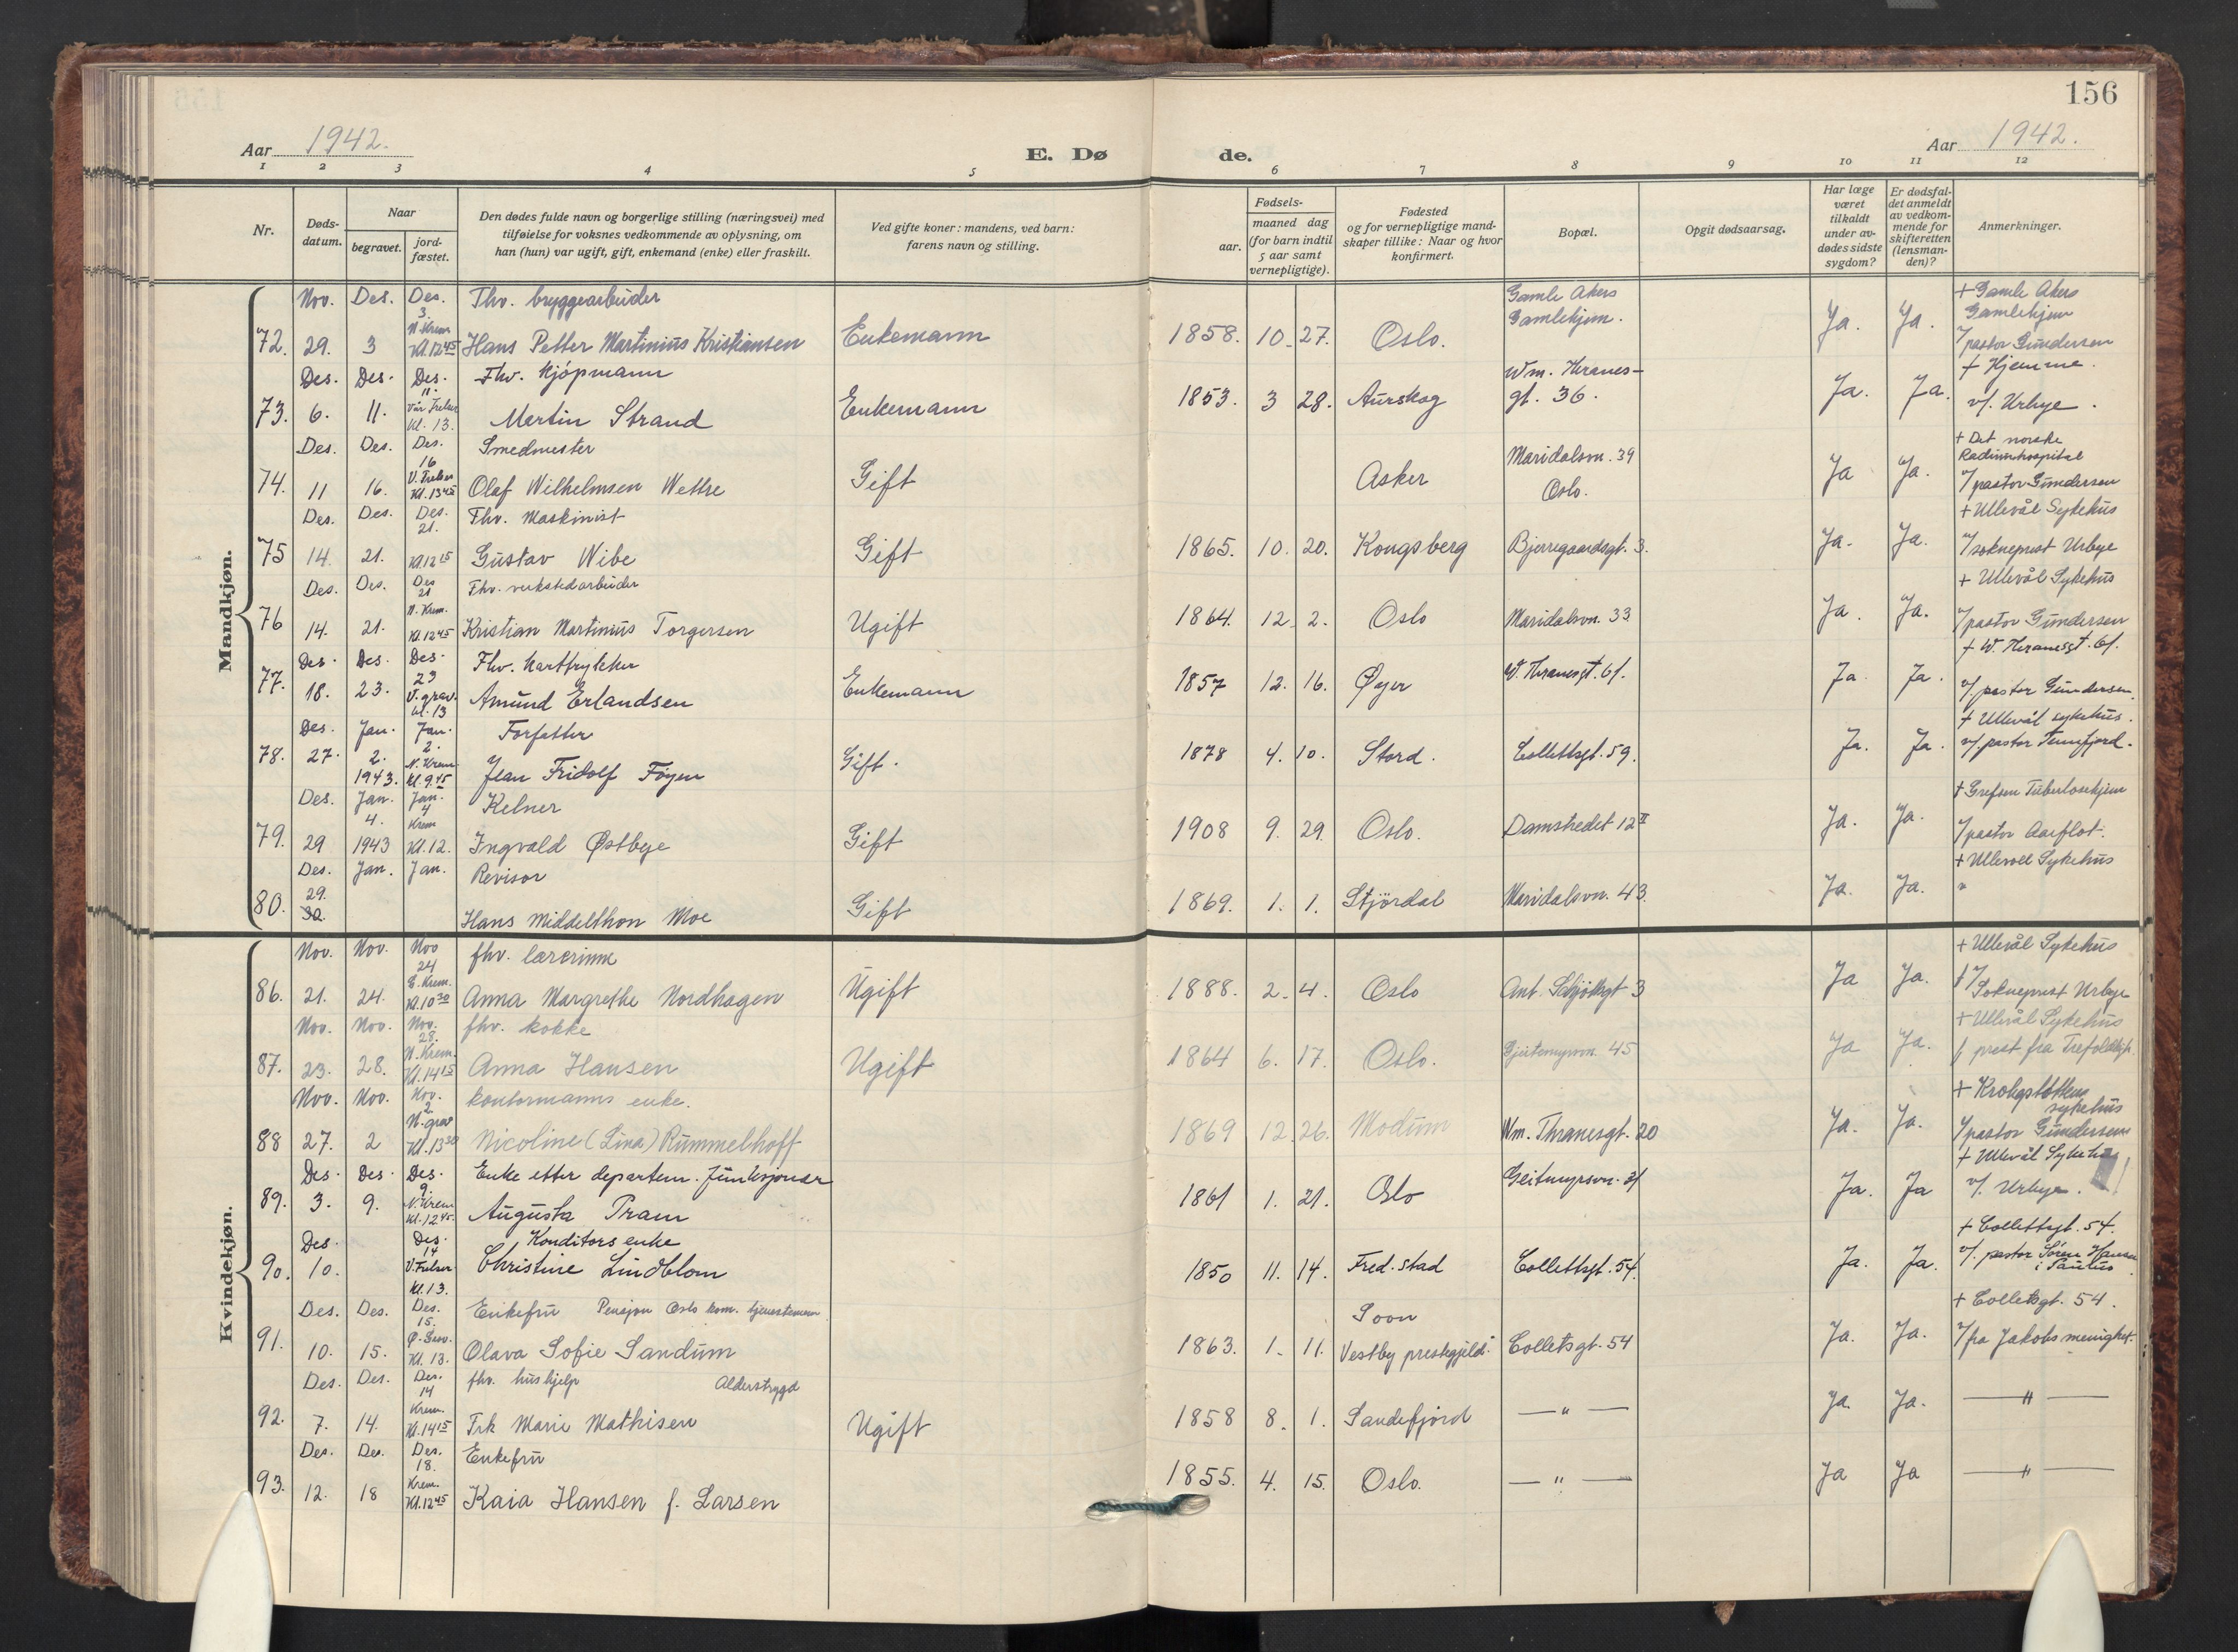 156
Aar 1942.
E. Dø
de.
Aar 1942.
1 2 3 4 5 6 7 8 9 10 11 12
Nr.
Døds-
datum.
Naar
begravet.
jord-
fæstet.
Den dødes fulde navn og borgerlige stilling (næringsvei) med
tilføielse for voksnes vedkommende av oplysning, om
han (hun) var ugift, gift, enkemand (enke) eller fraskilt.
Ved gifte koner: mandens, ved barn:
farens navn og stilling.
Fødsels-
aar.
maaned dag
(for barn indtil
5 aar samt
vernepligtige).
Fødested
og for vernepligtige mand-
skaper tillike: Naar og hvor
konfirmert.
Bopæl.
Opgit dødsaarsag.
Har læge
været
tilkaldt
under av-
dødes sidste
sygdom?
Er dødsfal-
det anmeldt
av vedkom-
mende for
skifteretten
(lensman-
den)?
Anmerkninger.
Mandkjøn.
Nov. Des. Des. Fhv. bryggearbeider Gamle Akers + Gamle Akers
3. Gamlehjem. Gamlehjem
N. Krem
72. 29. 3 Kl. 12 45 Hans Petter Martinius Kristiansen Enkemann 1858. 10. 27. Oslo. Ja. Ja. v/pastor Gundersen
Des. Des. Des. Fhv. kjøpmann Wm. Thranes- + Hjemme.
11. Vår Frelser
73. 6. 11. Kl. 13. Martin Strand Enkemann 1853. 3 28. Aurskog gt. 36. Ja. Ja. v/. Urbye.
Des. Des. Des. Smedmester Maridalsvn. 39 + Det norske
16 V. Frelser Radiumhospital
74. 11 16. Kl. 13 45 Olaf Wilhelmsen Wettre Gift Asker Oslo. Ja Ja. v/pastor Gundersen
Des. Des. Des. Fhv. Maskinist + Ullevål Sykehus
21.
75 14. 21. Kl 12 15 Gustav Wibe Gift 1865. 10. 20. Kongsberg Bjerregaardsgt. 3. Ja. Ja. v/sokneprest Urbye
Des. Des. Des Fhv. verkstedarbeider + Ullevål Sykehus
21 N. Krem.
76 14. 21. Kl. 12 45 Kristian Martinius Torgersen Ugift 1864. 12. 2. Oslo Maridalsvn. 33 Ja. Ja. v/pastor Gundersen
Des. Des. Des. Fhv. + W. Thranesgt. 61.
23 V. grav.
77. 18. 23. kl. 13 Amund Erlandsen Enkemann 1857 12. 16. Øyer W. Thranesgt. 61. Ja. Ja. v/. pastor Gundersen.
Des. Jan. Jan. Forfatter + Ullevål sykehus.
2. N. Krem
78. 27. 2. 1943. Kl. 9 45 Jean Fridolf Føyen Gift. 1878 4. 10. Stord. Collettsgt. 59. Ja. Ja. v/. pastor
Des. Jan. Jan. Kelner + Grefsen Tuberlosehjem
4. 4 Krem
79. 29 1943 Kl. 12. Ingvald Østbye Gift 1908 9. 29. Oslo. Damstredet 12 II Ja. Ja. v/pastor Aarflot.
Des. Jan. Jan. Revisor + Ullevoll Sykehus
80. 29. 30. Hans Middelthon Moe Gift 1869. 1. 1. Stjördal Maridalsvn. 43 Ja. Ja. "
Kvindekjøn.
Nov. Nov. Nov fhv. lærerinne + Ullevål Sykehus
24 G. Krem.
86. 21. 24. Kl. 10 30 Anna Margrethe Nordhagen Ugift 1888. 2. 4. Oslo Ant. Schjøthsgt 3 Ja Ja. v/ Sokneprest Urbye
Nov. Nov. Nov. fhv. kokke + Ullevål Sykehus
28. N. Krem.
87. 23. 28. Kl. 14 15 Anna Hansen Ugift 1864 6. 17. Oslo. Gjeitemyrsvn. 45 Ja Ja. v/ prest fra Trefoldigh.
Nov. Nov. Nov. kontormanns enke. + Krohgstøttens sykehus
2. N. grav
88 27. 2 Kl. 13 30 Nicoline (Lina) Rummelhoff 1869 12. 26. Modum Wm. Thranesgt. 20 Ja. Ja. v/pastor Gundersen
Des. Des. Des. Enke etter departem. funksjonær + Ullevål Sykehus
9. N. Krem
89. 3. 9. kl. 12 45. Augusta Pram 1861 1. 21. Oslo Geitmyrsvn. 31 Ja. Ja v/. Urbye.
Des. Des. Konditors enke + Collettsgt. 54.
14 V. Frelser
90. 10. Kl. 13. Christine Lindblom 1850 11. 14. Fred. stad Collettsgt. 54. Ja. Ja. v/. pastor Sören Hansen i Paulus
Des. Des. Des. Enkefru Pensjon Oslo kom. tjenestemenn Soon + Colletsgt. 54.
15.
91. 10. 15. Kl. 13. Olava Sofie Sandum 1863. 1. 11. Vestby prestegjeld. Colletsgt. 54 Ja. Ja. v/fra Jakobs menighet.
Des. Des. Des. fhv. hushjelp Alderstrygd
14 Krem.
92. 7. 14. Kl. 14 15 Frk Marie Mathisen Ugift 1858 8. 1. Sandefjord — " — Ja. Ja. — " —
Des. Des. Des. Enkefru
18. Krem.
93. 12. 18 Kl. 12 45 Kaia Hansen f. Larsen 1855. 4. 15. Oslo. — " — Ja Ja — " —